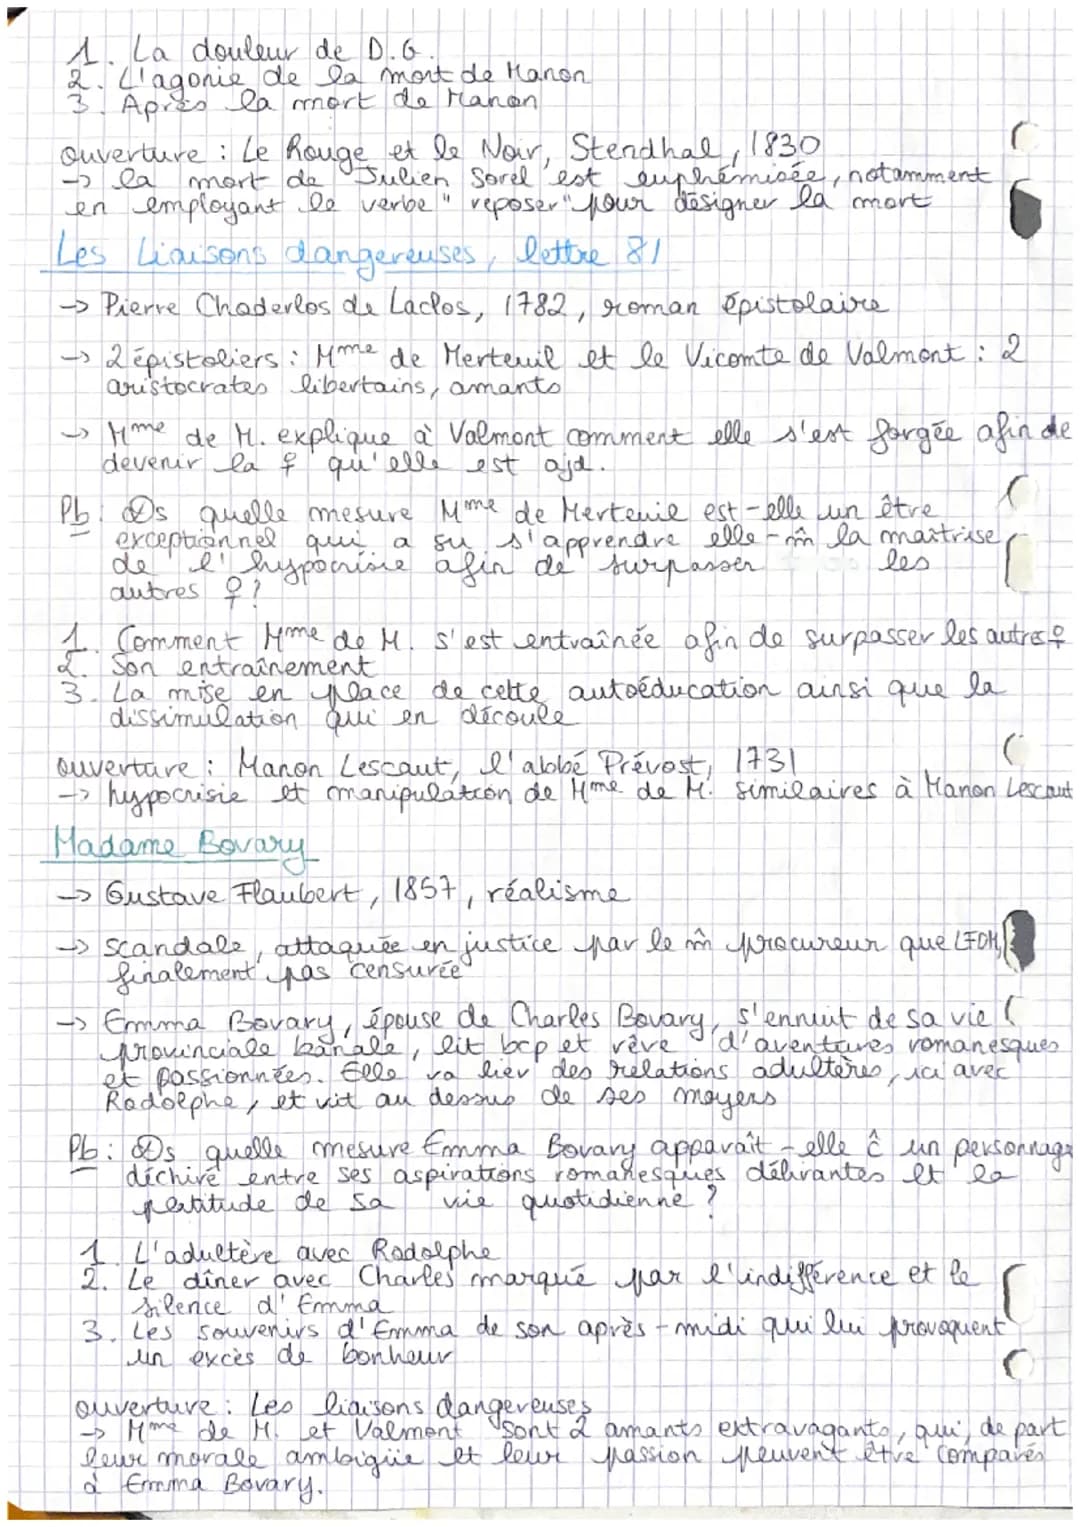 1. La douleur de D.G.
2. L'agonie de la mort de Manon
3. Après la mort de Manon
ouverture : Le Rouge et le Noir, Stendhal, 1830
-> la mort de Julien Sorel est euphémisée, notamment
en employant le verbe "reposer" pour désigner la mort
Les Liaisons dangereuses, lettre 81
-> Pierre Choderlos de Laclos, 1782, roman épistolaire
-> 2 épistoliers : Mme de Merteuil et le Vicomte de Valmont : 2
aristocrates libertains, amants
-> Mme de M. explique à Valmont comment elle s'est forgée afin de
devenir la ♀ qu'elle est ajd.
Pb : Ds quelle mesure Mme de Merteuil est-elle un être
exceptionnel qui a su s'apprendre elle-m̂ la maîtrise
de l'hypocrisie afin de surpasser les
autres ♀?
1. Comment Mme de M. s'est entraînée afin de surpasser les autres ♀
2. Son entraînement
3. La mise en place de cette autoéducation ainsi que la
dissimulation qui en découle
ouverture : Manon Lescaut, l'abbé Prévost, 1731
-> hypocrisie et manipulation de Mme de M. similaires à Manon Lescaut
Madame Bovary
-> Gustave Flaubert, 1857, réalisme
-> scandale, attaquée en justice par le m̂ procureur que LFDM,
finalement pas censurée
-> Emma Bovary, épouse de Charles Bovary, s'ennuit de sa vie
provinciale banale, lit bcp et rêve d'aventures romanesques
et passionnées. Elle va lier des relations adultères, ici avec
Rodolphe, et vit au dessus de ses moyens
Pb : Ds quelle mesure Emma Bovary apparaît-elle ĉ un personnage
déchiré entre ses aspirations romanesques délirantes et la
platitude de sa vie quotidienne ?
1. L'adultère avec Rodolphe
2. Le dîner avec Charles marqué par l'indifférence et le
silence d'Emma
3. Les souvenirs d'Emma de son après-midi qui lui provoquent
un excès de bonheur
ouverture : Les liaisons dangereuses
-> Mme de M. et Valmont sont 2 amants extravagants, qui, de part
leur morale ambigüe et leur passion peuvent être comparés
à Emma Bovary.